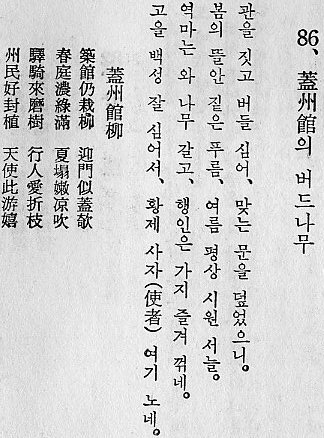 86、 蓋州館의 버드나무
관을 짓고 버들 심어、 맞는 문을 덮었으니。
봄의 뜰안 짙은 푸름、 여름 평상 시원 서늘。
역마는 와 나무 갈고、 행인은 가지 즐겨 꺾네。
고을 백성 잘 심어서、 황제 사자(使者) 여기 노네。
蓋州館柳
築館仍栽柳 迎門似蓋欹
春庭濃綠滿 夏塌嫩凉吹
驛騎來磨樹 行人愛折枝
州民好封植 天使此游嬉